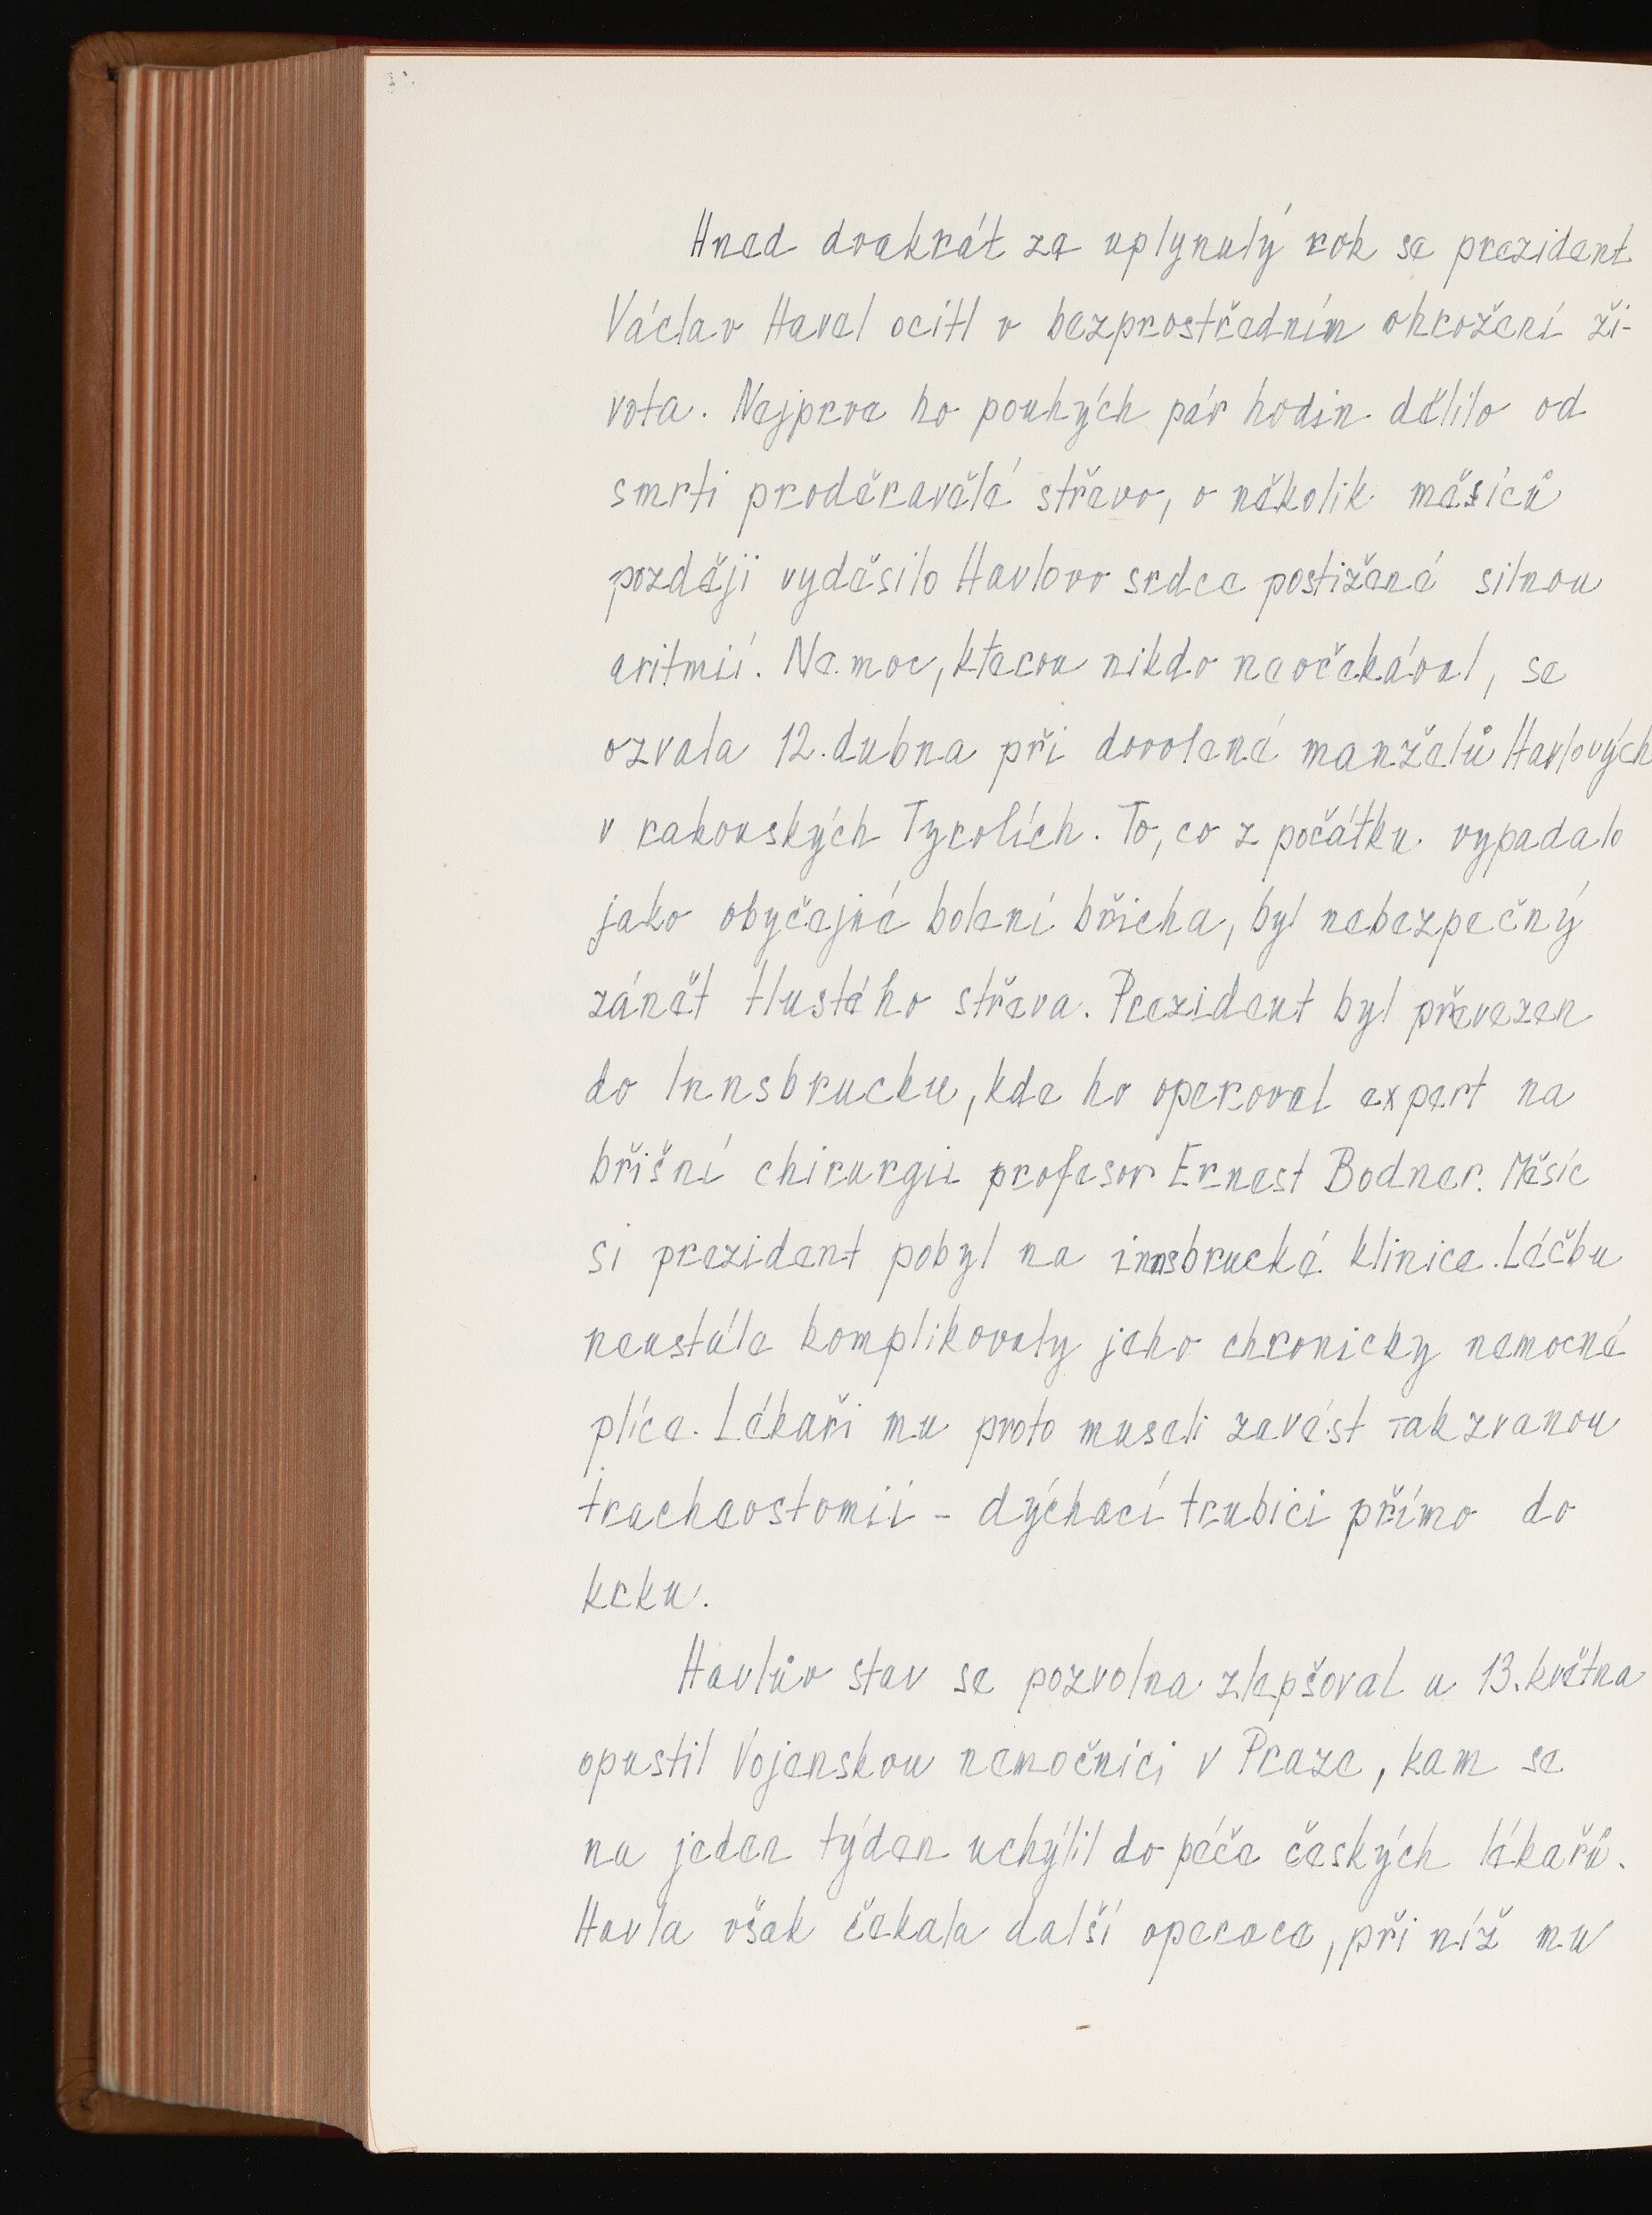 Hned dvakrát za uplynulý rok se prezident
Václav Havel ocitl v bezprostředním ohrožení ži-
vota. Nejprve ho pouhých pár hodin dělilo od
smrti proděravělé střevo, o několik měsíců
později vyděsilo Havlovo srdce postižené silnou
aritmií. Nemoc, kterou nikdo neočekával, se
ozvala 12. dubna při dovolené manželů Havlových
v rakouských Tyrolích. To, co z počátku vypadalo
jako obyčejné bolení břicha, byl nebezpečný
zánět tlustého střeva. Prezident byl převezen
do Innsbrucku, kde ho operoval expert na
břišní chirurgii profesor Ernest Bodner. Měsíc
si prezident pobyl na innsbrucké klinice. Léčbu
neustále komplikovaly jeho chronicky nemocné
plíce. Lékaři mu proto museli zavést takzvanou
tracheostomii - dýchací trubici přímo do
krku.
Havlův stav se pozvolna zlepšoval a 13. května
opustil Vojenskou nemocnici v Praze, kam se
na jeden týden uchýlil do péče českých lékařů.
Havla však čekala další operace, při níž mu